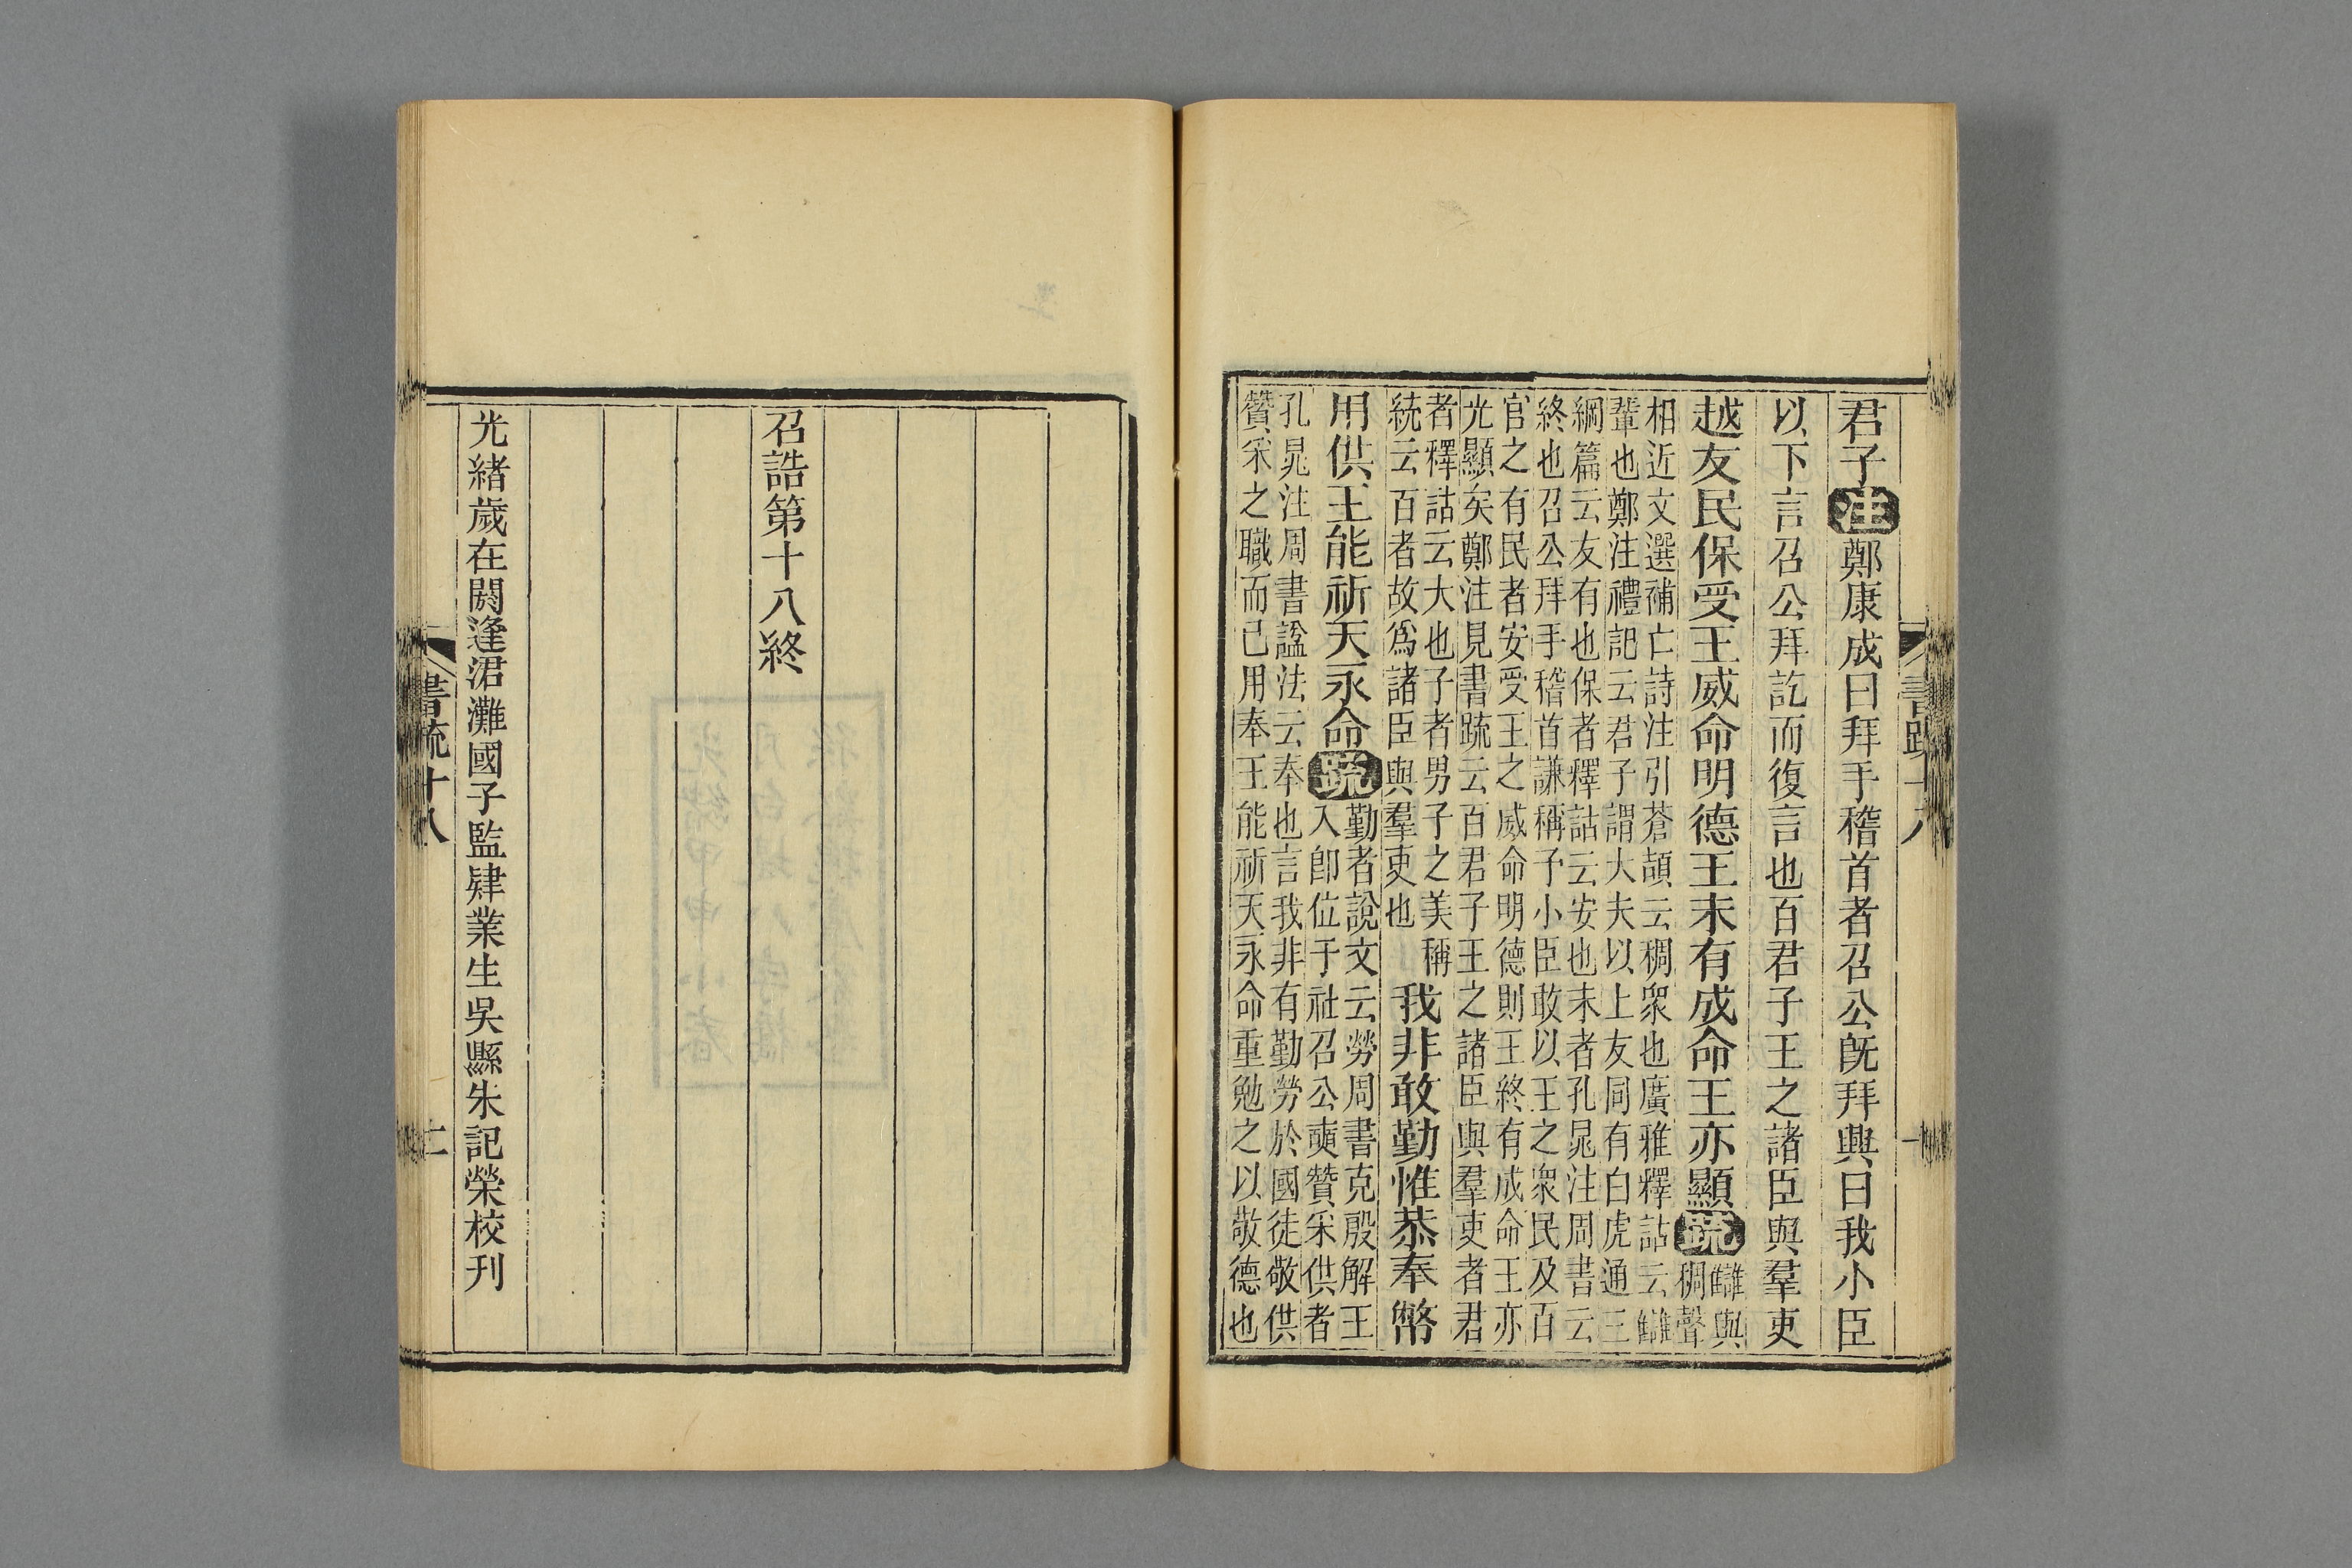 君子注鄭康成曰拜手稽首者召公旣拜興曰我小臣
以下言召公拜訖而復言也百君子王之諸臣與羣吏
越友民保受王威命明德王末有成命王亦顯疏讎與
稠聲
相近文選補亡詩注引蒼頡云稠衆也廣雅釋詁云讎
輩也鄭注禮記云君子謂大夫以上友同有白虎通三
綱篇云友有也保者釋詁云安也末者孔晁注周書云
終也召公拜手稽首謙稱予小臣敢以王之衆民及百
官之有民者安受王之威命明德則王終有成命王亦
光顯矣鄭注見書疏云百君子王之諸臣與羣吏者君
者釋詁云大也子者男子之美稱
統云百者故爲諸臣與羣吏也
我非敢勤惟恭奉幣
用供王能祈天永命疏勤者說文云勞周書克殷解王
入卽位于社召公奭贊采供者
孔晁注周書諡法云奉也言我非有勤勞於國徒敬供
贊采之職而已用奉王能祈天永命重勉之以敬德也
召誥第十八終
光緒歲在閼逢涒灘國子監肄業生吳縣朱記榮校刊
書疏十八